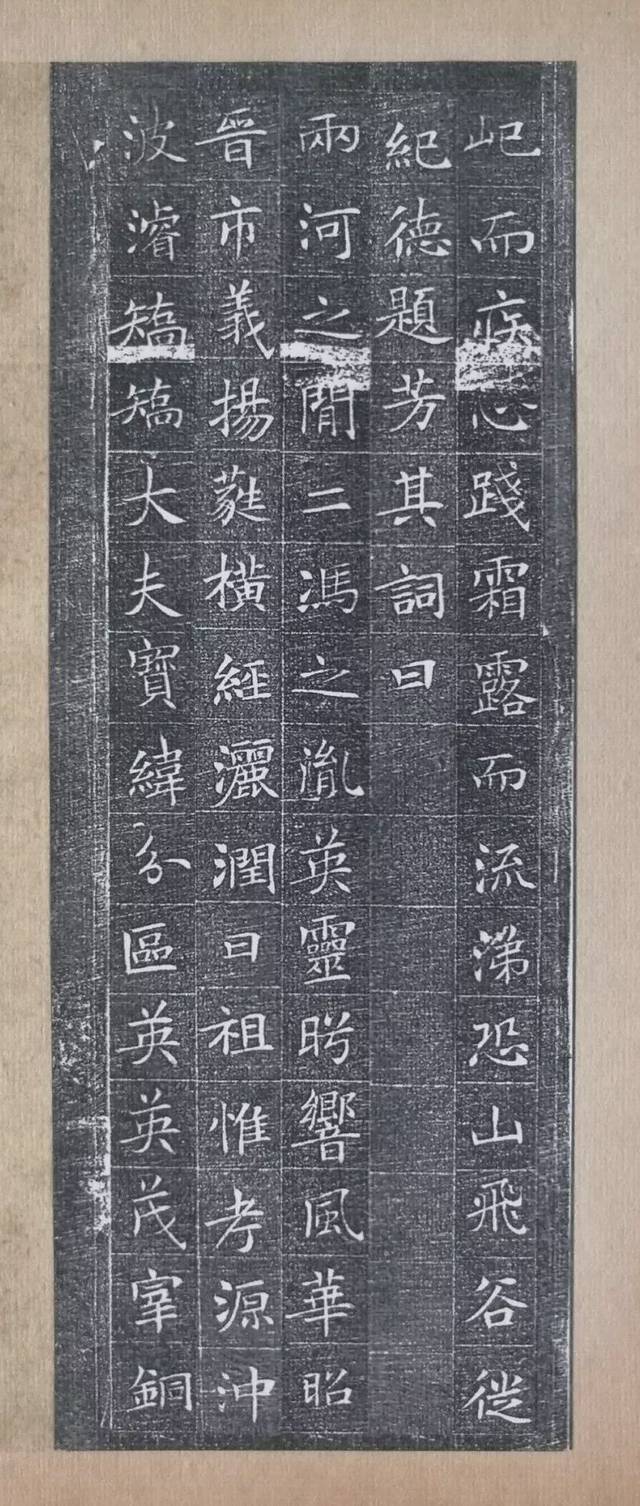 屺而疚心踐霜露而流涕恐山飛谷徙
紀德題芳其詞曰
兩河之閒二馮之胤英靈肸響風華昭
晉市義揚蕤橫經灑潤曰祖惟考源沖
波濬矯矯大夫寶緯分區英英茂宰銅